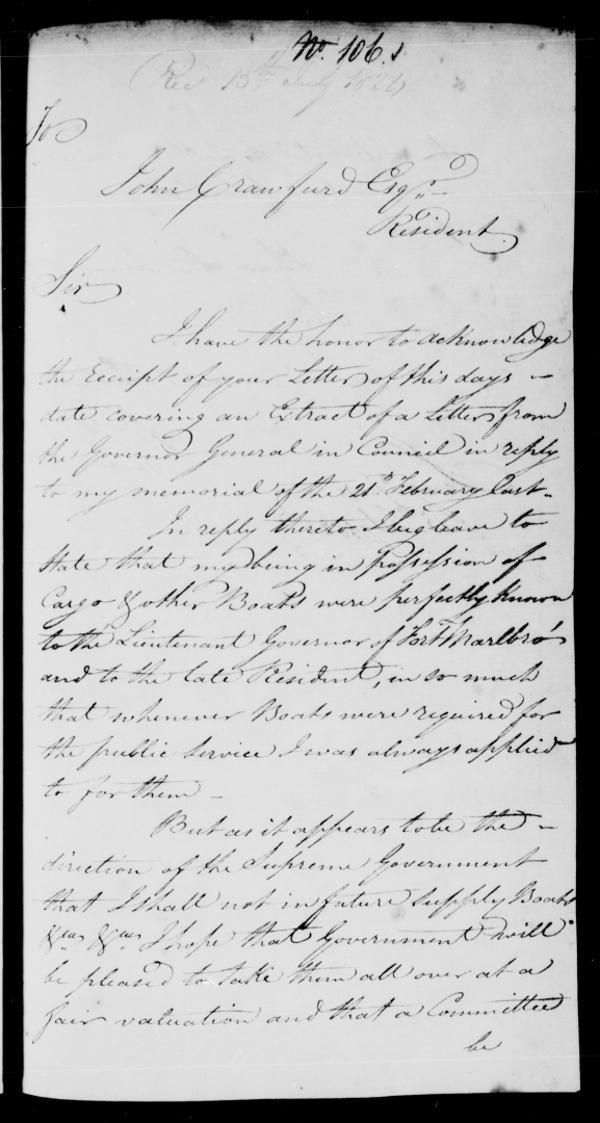 No. 106.
Recd 13th July 1824
To
John Crawfurd Esqr.
Resident.
Sir
I have the honor to acknowledge
the receipt of your Letter of this days
date covering an Extract of a Letter from
the Governor General in Council in reply
to my memorial of the 21st February last.
In reply thereto I beg leave to
State that my being in Possession of
Cargo & other Boats were perfectly known
to the Lieutenant Governor of Fort Marlbro'
and to the late Resident, in so much
that whenever Boats were required for
the public Service I was always applied
to for them
But as it appears to be the
direction of the Supreme Government
that I shall not in future Supply Boats
&ca &ca I hope that Government will
be pleased to take them all over at a
fair valuation and that a Committee
be